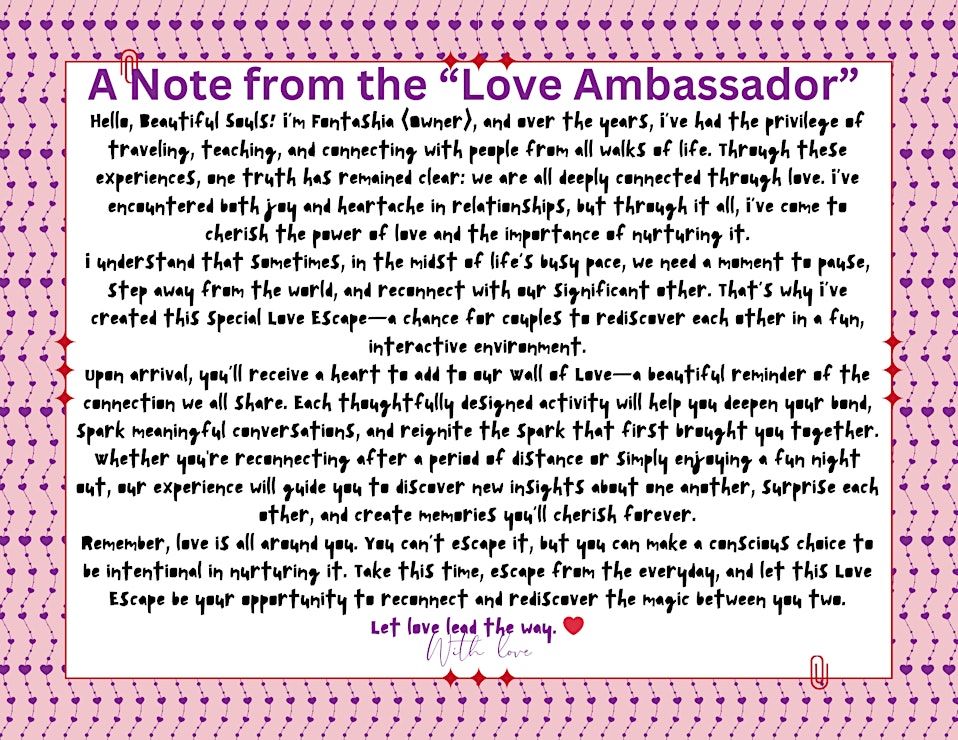 A Note from the “Love Ambassador”
Hello, Beautiful Souls! I'm Fontashia (Owner), and over the years, I've had the privilege of
traveling, teaching, and connecting with people from all walks of life. Through these
experiences, one truth has remained clear: we are all deeply connected through love. I've
encountered both joy and heartache in relationships, but through it all, I've come to
cherish the power of love and the importance of nurturing it.
I understand that sometimes, in the midst of life's busy pace, we need a moment to pause,
step away from the world, and reconnect with our significant other. That's why I've
created this special Love Escape—a chance for couples to rediscover each other in a fun,
interactive environment.
Upon arrival, you'll receive a heart to add to our Wall of Love—a beautiful reminder of the
connection we all share. Each thoughtfully designed activity will help you deepen your bond,
spark meaningful conversations, and reignite the spark that first brought you together.
Whether you're reconnecting after a period of distance or simply enjoying a fun night
out, our experience will guide you to discover new insights about one another, surprise each
other, and create memories you'll cherish forever.
Remember, love is all around you. You can't escape it, but you can make a conscious choice to
be intentional in nurturing it. Take this time, escape from the everyday, and let this Love
Escape be your opportunity to reconnect and rediscover the magic between you two.
Let love lead the way. ❤️
With love